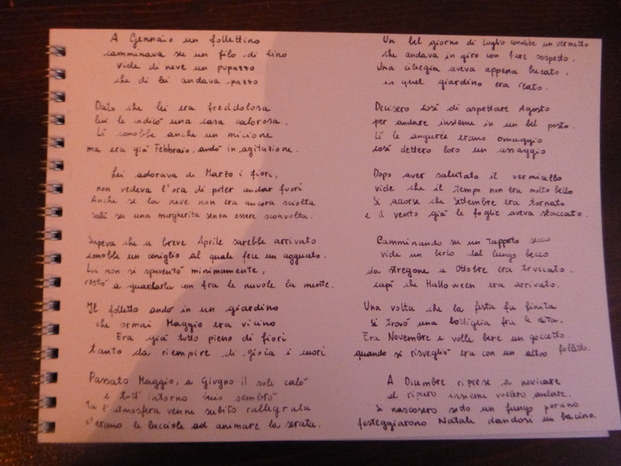 A Gennaio un follettino
camminava su un filo di lino
vide di neve un pupazzo
che di lei andava pazzo
Dato che lei era freddolosa
lui le indicò una casa calorosa.
Lì conobbe anche un micione
ma era già Febbraio, andò in agitazione.
Lei adorava di Marzo i fiori,
non vedeva l'ora di poter andar fuori
Anche se la neve non era ancora sciolta
salì su una margherita senza essere sconvolta.
Sapeva che a breve Aprile sarebbe arrivato
conobbe un coniglio al quale fece un agguato.
Lui non si spaventò minimamente,
restò a guardarla con fra le nuvole la mente.
Il folletto andò in un giardino
che ormai Maggio era vicino
Era già tutto pieno di fiori
tanto da riempire di gioia i cuori
Passato Maggio, a Giugno il sole calò
e tutt'intorno buio sembrò
l'atmosfera venne subito rallegrata
c'erano le lucciole ad animare la serata.
Un bel giorno di Luglio conobbe un vermetto
che andava in giro con fare sospetto.
Una ciliegia aveva appena bucato,
in quel giardino era stato.
Decisero così di aspettare Agosto
per andare insieme in un bel posto.
Lì le angurie erano omaggio
così dettero loro un assaggio
Dopo aver salutato il vermicello
vide che il tempo non era molto bello
Si accorse che Settembre era tornato
e il vento già le foglie aveva staccato.
Camminando su un tappeto secco
vide un merlo dal lungo becco
da stregone a Ottobre era truccato.
capì che Halloween era arrivato.
Una volta che la festa fu finita
si trovò una bottiglia fra le dita.
Era Novembre e volle bere un goccetto
quando si risvegliò era con un altro folletto.
A Dicembre riprese a nevicare
al riparo insieme vollero andare.
Si nascosero sotto un fungo porcino
festeggiarono Natale dandosi un bacino.